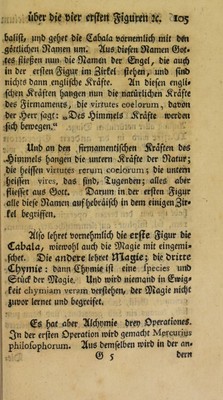 über die vier ersten Figuren ꝛc. 105
balist, und gehet die Cabala vornemlich mit den
göttlichen Namen um. Aus diesen Namen Got-
tes fließen nun die Namen der Engel, die auch
in der ersten Figur im Zirkel stehen, und sind
nichts dann englische Kräfte. An diesen engli-
schen Kräften hangen nun die natürlichen Kräfte
des Firmaments, die virtutes coelorum, davon
der Herr sagt: „Des Himmels Kräfte werden
sich bewegen.“
Und an den firmamentischen Kräften des
Himmels hangen die untern Kräfte der Natur;
die heissen virtutes rerum coelorum; die untern
heissen vires, das sind, Tugenden; alles aber
fliesset aus Gott. Darum in der ersten Figur
alle diese Namen auf hebräisch in dem einigen Zir-
kel begriffen.
Also lehret vornehmlich die erste Figur die
Cabala, wiewohl auch die Magie mit eingemi-
schet. Die andere lehret Magie; die dritte
Chymie: dann Chymie ist eine species und
Stück der Magie. Und wird niemand in Ewig-
keit chymiam veram verstehen, der Magie nicht
zuvor lernet und begreifet.
Es hat aber Alchymie drey Operationes.
In der ersten Operation wird gemacht Mercurius
philosophorum. Aus demselben wird in der an-
G 5 dern